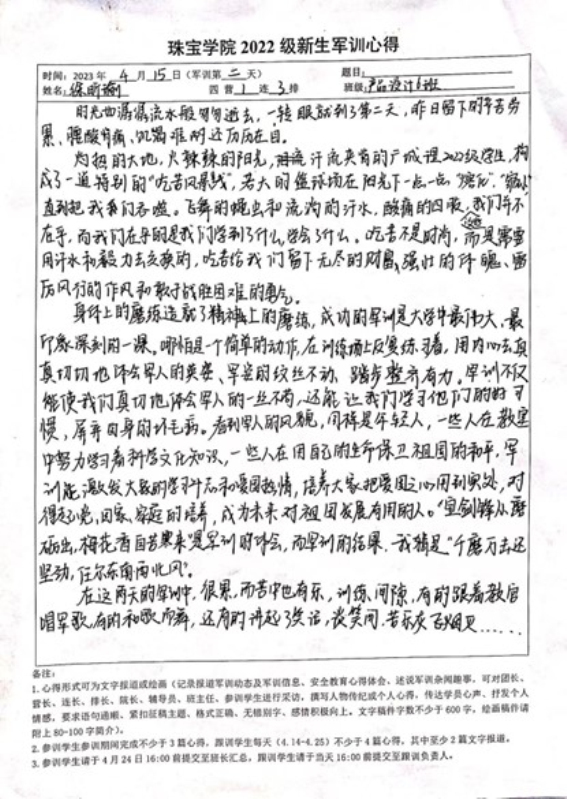 珠宝学院 2022 级新生军训心得
时间:2023 年 4 月 15 日（军训第 二 天） 题目:
姓名: 徐昕瑜 四 营 1 连 3 排 班级: 产品设计6班
时光如潺潺流水般匆匆逝去，一转眼就到了第二天，昨日留下的辛苦劳
累、腰酸背痛、饥渴难耐还历历在目。
灼热的大地，火辣辣的阳光，汗流夹背的广城理2022级学生，构
成了一道特别的“吃苦风景线”，若大的篮球场在阳光下一点一点
直到把我们吞噬。飞舞的蝇虫和流淌的汗水，酸痛的四肢，我们并不
在乎，而我们在乎的是我们学到了什么，学会了什么。吃苦不是时尚，而是需要
用汗水和毅力去交换的，吃苦给我们留下无尽的财富，强壮的体魄、雷
厉风行的作风和敢于战胜困难的勇气。
身体上的磨练造就了精神上的磨练，成功的军训是大学中最伟大、最
印象深刻的一课。哪怕是一个简单的动作，在训练场上反复练习着，用内心去真
真切切地体会军人的英姿、军姿的纹丝不动、踏步整齐有力。军训不仅
能使我们真切地体会军人的一丝不苟，还能让我们学习他们的好习
惯，摒弃自身的坏毛病。看到军人的风貌，同样是年轻人，一些人在教室
中努力学习着科学文化知识，一些人在用自己的生命保卫祖国的和平，军
训能激发大家的学习斗志和爱国热情，培养大家把爱国之心用到实处，对
得起党、国家、家庭的培养，成为未来对祖国发展有用的人。“宝剑锋从磨
砺出，梅花香自苦寒来”是军训的体会，而军训的结果，我猜是“千磨万击还
坚劲，任尔东南西北风”。
在这两天的军训中，很累，而苦中也有乐，训练间隙，有的跟着教官
唱军歌，有的和歌而舞，还有的讲起了笑话，谈笑间，苦乐灰飞烟灭……
备注:
1. 心得形式可为文字报道或绘画（记录报道军训动态及军训信息、安全教育心得体会、述说军训杂闻趣事，可对团长、
营长、连长、排长、院长、辅导员、班主任、参训学生进行采访，撰写人物传纪或个人心得，传达学员心声、抒发个人
情感，要求语句通顺、紧扣征稿主题、格式正确、无错别字、感情积极向上。文字稿件字数不少于 600 字，绘画稿件请
附上 80-100 字简介）。
2. 参训学生参训期间完成不少于 3 篇心得，跟训学生每天（4.14-4.25）不少于 4 篇心得，其中至少 2 篇文字报道。
3. 参训学生请于 4 月 24 日 16:00 前提交至班长汇总，跟训学生请于当天 16:00 前提交至跟训负责人。